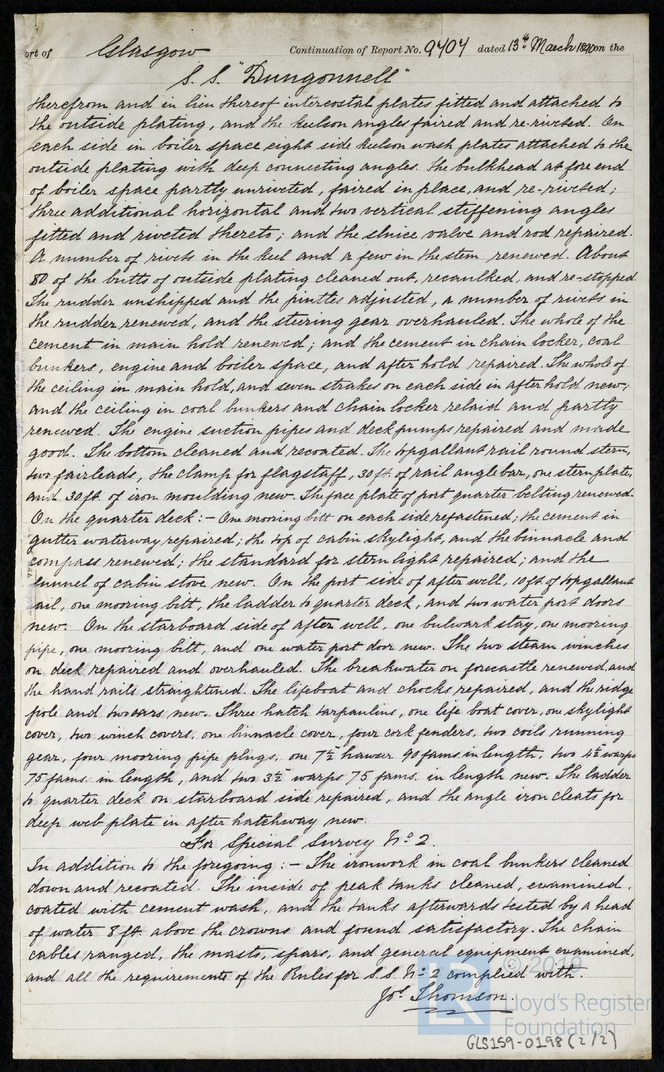 ort of Glasgow Continuation of Report No. 9404 dated 13th March 1890 on the
S. S. "Dungonnell"
therefrom and in lieu thereof intercostal plates fitted and attached to
the outside plating, and the keelson angles faired and re-riveted. On
each side in boiler space eight side keelson wash plates attached to the
outside plating with deep connecting angles. The bulkhead at fore end
of boiler space partly unriveted, faired in place, and re-riveted;
three additional horizontal and two vertical stiffening angles
fitted and riveted thereto; and the sluice valve and rod repaired.
A number of rivets in the keel and a few in the stem renewed. About
80 of the butts of outside plating cleaned out, recaulked, and re-stopped.
The rudder unshipped and the pintles adjusted, a number of rivets in
the rudder renewed, and the steering gear overhauled. The whole of the
cement in main hold renewed; and the cement in chain locker, coal
bunkers, engine and boiler space, and after hold repaired. The whole of
the ceiling in main hold, and seven strakes on each side in after hold new;
and the ceiling in coal bunkers and chain locker relaid and partly
renewed. The engine suction pipes and deck pumps repaired and made
good. The bottom cleaned and recoated. The topgallant rail round stern,
two fairleads, the clamp for flagstaff, 30 ft. of rail angle bar, one stern plate,
and 30 ft. of iron moulding new. The face plate of port quarter belting renewed.
On the quarter deck:- One mooring bitt on each side refastened; the cement in
gutter waterway repaired; the top of cabin skylight, and the binnacle and
compass renewed; the standard for stern light repaired; and the
funnel of cabin stove new. On the port side of after well, 10 ft of topgallant
ail, one mooring bitt, the ladder to quarter deck, and two water port doors
new. On the starboard side of after well, one bulwark stay, one mooring
pipe, one mooring bitt, and one water port door new. The two steam winches
on deck repaired and overhauled. The breakwater on forecastle renewed, and
the hand rails straightened. The lifeboat and chocks repaired, and the ridge
pole and two oars, new. Three hatch tarpaulins, one life boat cover, one skylight
cover, two winch covers, one binnacle cover, four cork fenders, two coils running
gear, four mooring pipe plugs, one 7½ hawser 90 fams. in length, two 4½ warps
75 fams. in length, and two 3½ warps 75 fams. in length new. The ladder
to quarter deck on starboard side repaired, and the angle iron cleats for
deep web plate in after hatchway new.
For Special Survey No. 2.
In addition to the foregoing:- The ironwork in coal bunkers cleaned
down and recoated. The inside of peak tanks cleaned, examined,
coated with cement wash, and the tanks afterwards tested by a head
of water 8 ft. above the crowns and found satisfactory. The chain
cables ranged, the masts, spars, and general equipment examined,
and all the requirements of the Rules for S.S. No. 2 complied with.
Jos. Thomson.
© 2019
Lloyd's Register
Foundation
GLS159-0198 (2/2)